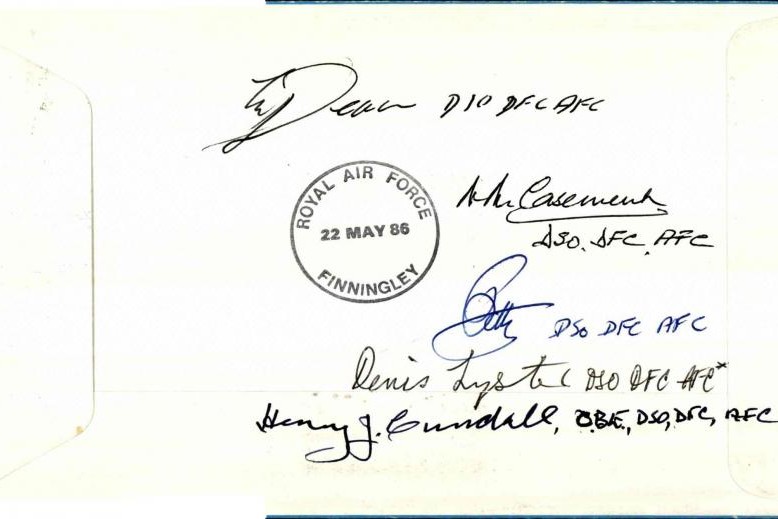 Deacon DSO DFC AFC
ROYAL AIR FORCE
22 MAY 86
FINNINGLEY
Casement
DSO. DFC. AFC
DSO DFC AFC
Denis Lyster DSO DFC AFC*
Henry J. Cundall, C.B.E., DSO, DFC, AFC